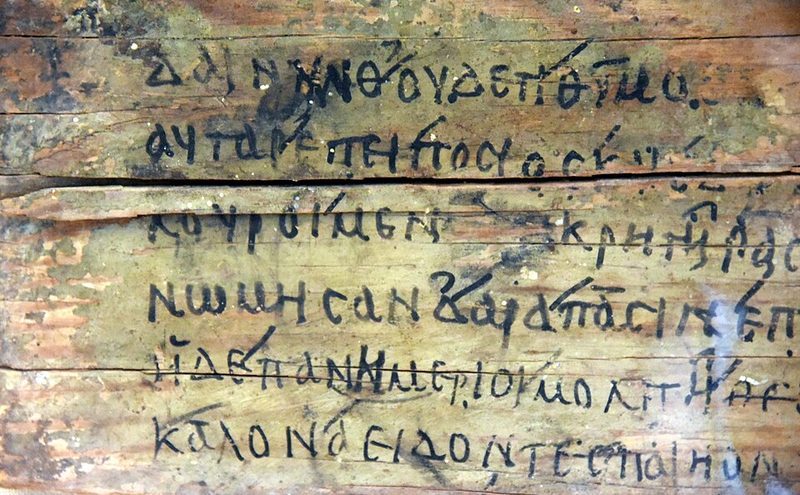 ΔΑΙΝΗΝΘ ΟΥΔΕΤΙΘΥΜΟ
ΑΥΤΑΡΕΠΕΙΠΟCΙΟCΚ
ΚΟΥΡΟΙΜΕΝ ΚΡΗΤΗΡΑC
ΝΩΜΗCΑΝΔΑΡΑΠΑCΙΝΕΠ
ΗΔΕΠΑΝΝΗΜΕΡΙΟΙΜΟΛΠΗΘΕ
ΚΑΛΟΝΑΕΙΔΟΝΤΕCΠΑΙΗΟΝ